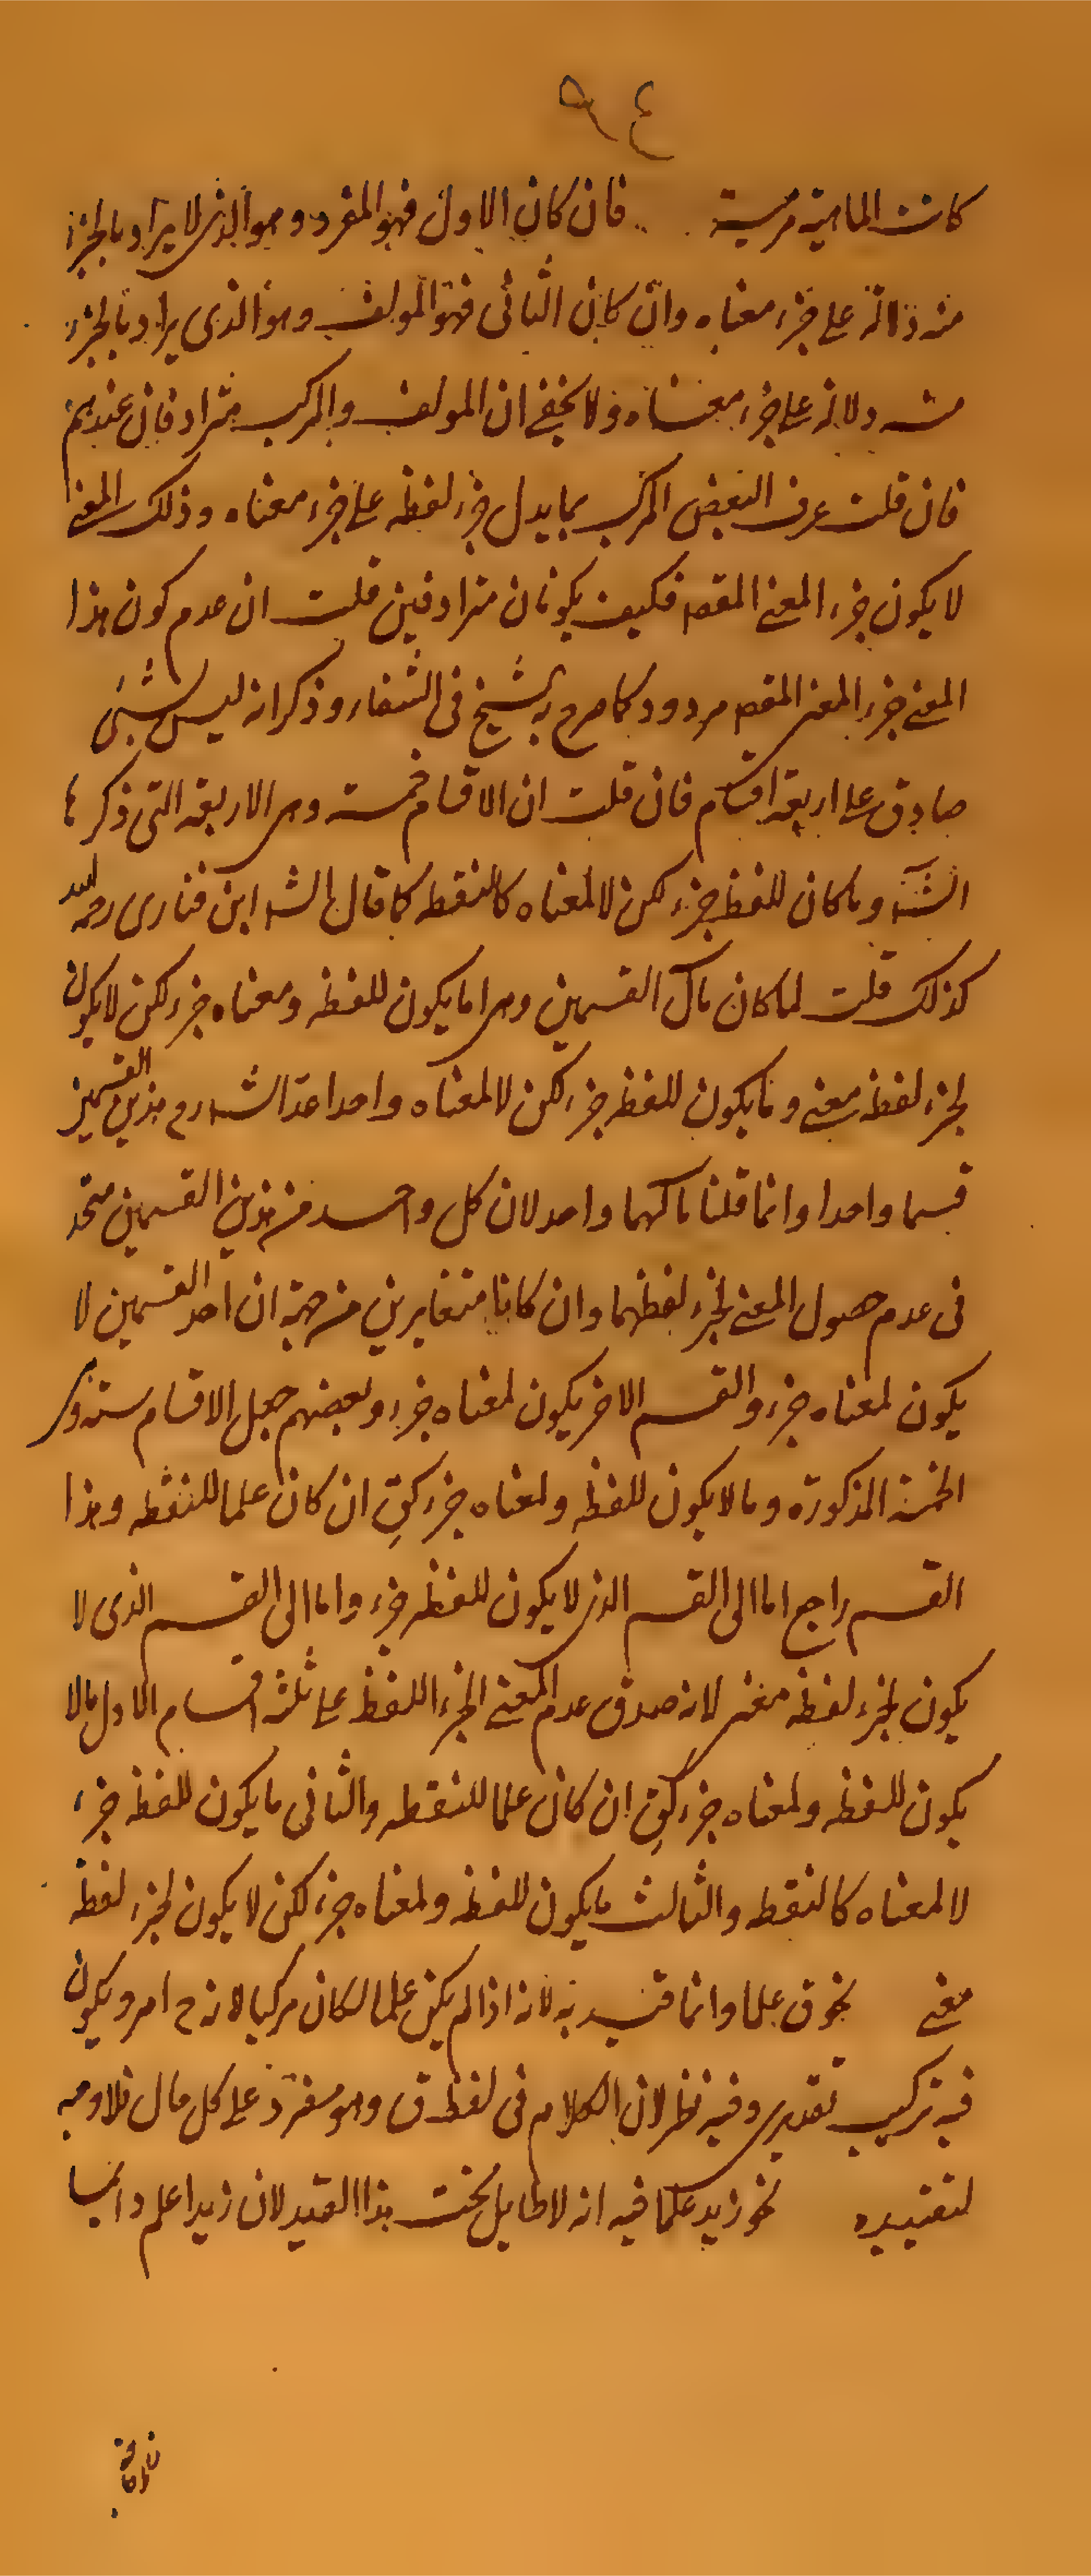 ٩٤
كانت الماهية فان كان الاول فهو المفرد وهو الذى لا يراد بالجزء
منه دلالة على جزء معناه وان كان الثانى فهو المولف وهو الذى يراد بالجزء
منه دلالة على جزء معناه ولا يخفى ان المولف والمركب مترادفان عندهم
فان قلت عرف البعض المركب بما يدل جزء لفظه على جزء معناه وذلك المعنى
لا يكون جزء المعنى المقصو فكيف يكونان مترادفين قلت ان عدم كون هذا
المعنى جزء المعنى المقصو مردود كما صرح به الشيخ فى الشفاء وذكر انه ليس بشئ
صادق على اربعة اقسام فان قلت ان الاقسام خمسة وهى الاربعة التى ذكرها
الشه وما كان للفظ جزء لكن لا لمعناه كالنقطه كما قال الشه ابن فنارى رحمه الله
كذلك قلت لما كان مآل القسمين وهى اما يكون للفظه ومعناه جزء لكن لا يكون
لجزء لفظه معنى وما يكون للفظ جزء لكن لا لمعناه واحدا عد الشارح هذين القسمين
قسما واحدا وانما قلنا مآلهما واحد لان كل واحد من هذين القسمين متحد
فى عدم حصول المعنى لجزء لفظهما وان كانا متغايرين من جهة ان احد القسمين لا
يكون لمعناه جزء والقسم الاخر يكون لمعناه جزء وبعضهم جعل الاقسام ستة
الخمسة المذكورة وما لا يكون للفظه ولمعناه جزء كق ان كان علما للنقطه وهذا
القسم راجع اما الى القسم الذى لا يكون للفظه جزء واما الى القسم الذى لا
يكون لجزء لفظه معنى لانه صدق عدم المعنى لجزء اللفظ على ثلثة اقسام الاول مالا
يكون للفظه ولمعناه جزء كق ان كان علما للنقطه والثانى ما يكون للفظه جزء
لا لمعناه كالنقطه والثالث ما يكون للفظه ولمعناه جزء لكن لا يكون لجزء لفظه
معنى نحو ق علما وانما قيد به لانه اذا لم يكن علما لكان مركبا لانه ح امر ويكون
فيه تركيب تقديرى وفيه نظر لان الكلام فى لفظ ق وهو مفرد على كل حال فلا وجه
لتقييده نحو زيد علما فيه انه لا طايل تحت هذا القيد لان زيدا علم دائما